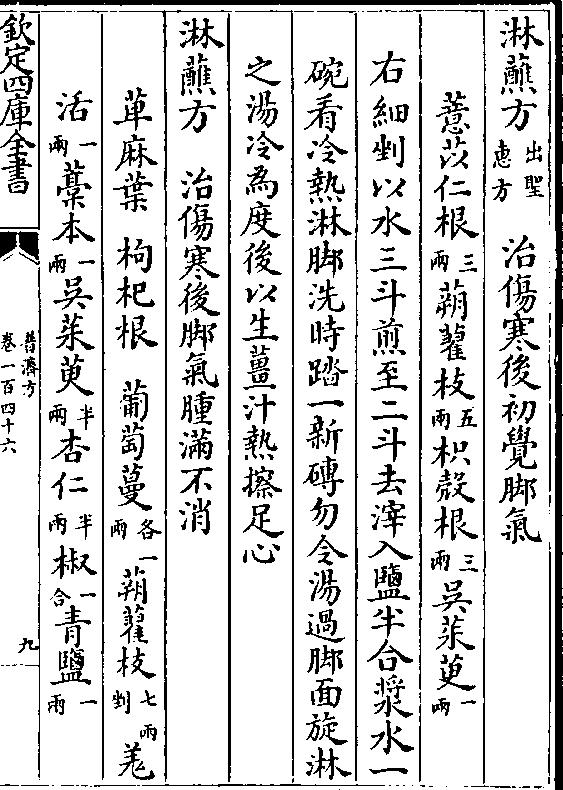 淋蘸方出聖惠方　治傷寒後初覺脚氣
薏苡仁根三兩蒴藋枝五兩枳殼根三兩吳茱萸一兩
右細剉以水三斗煎至二斗去滓入鹽半合漿水一
碗看冷熱淋脚洗時踏一新磚勿令湯過脚面旋淋
之湯冷為度後以生薑汁熱擦足心
淋蘸方　治傷寒後脚氣腫滿不消
萆麻葉　枸杞根　葡萄蔓各一兩蒴藋枝七兩剉羗
活一兩藁本一兩吳茱萸半兩杏仁半兩椒一合青鹽一兩
欽定四庫全書
普濟方
卷一百四十六
九